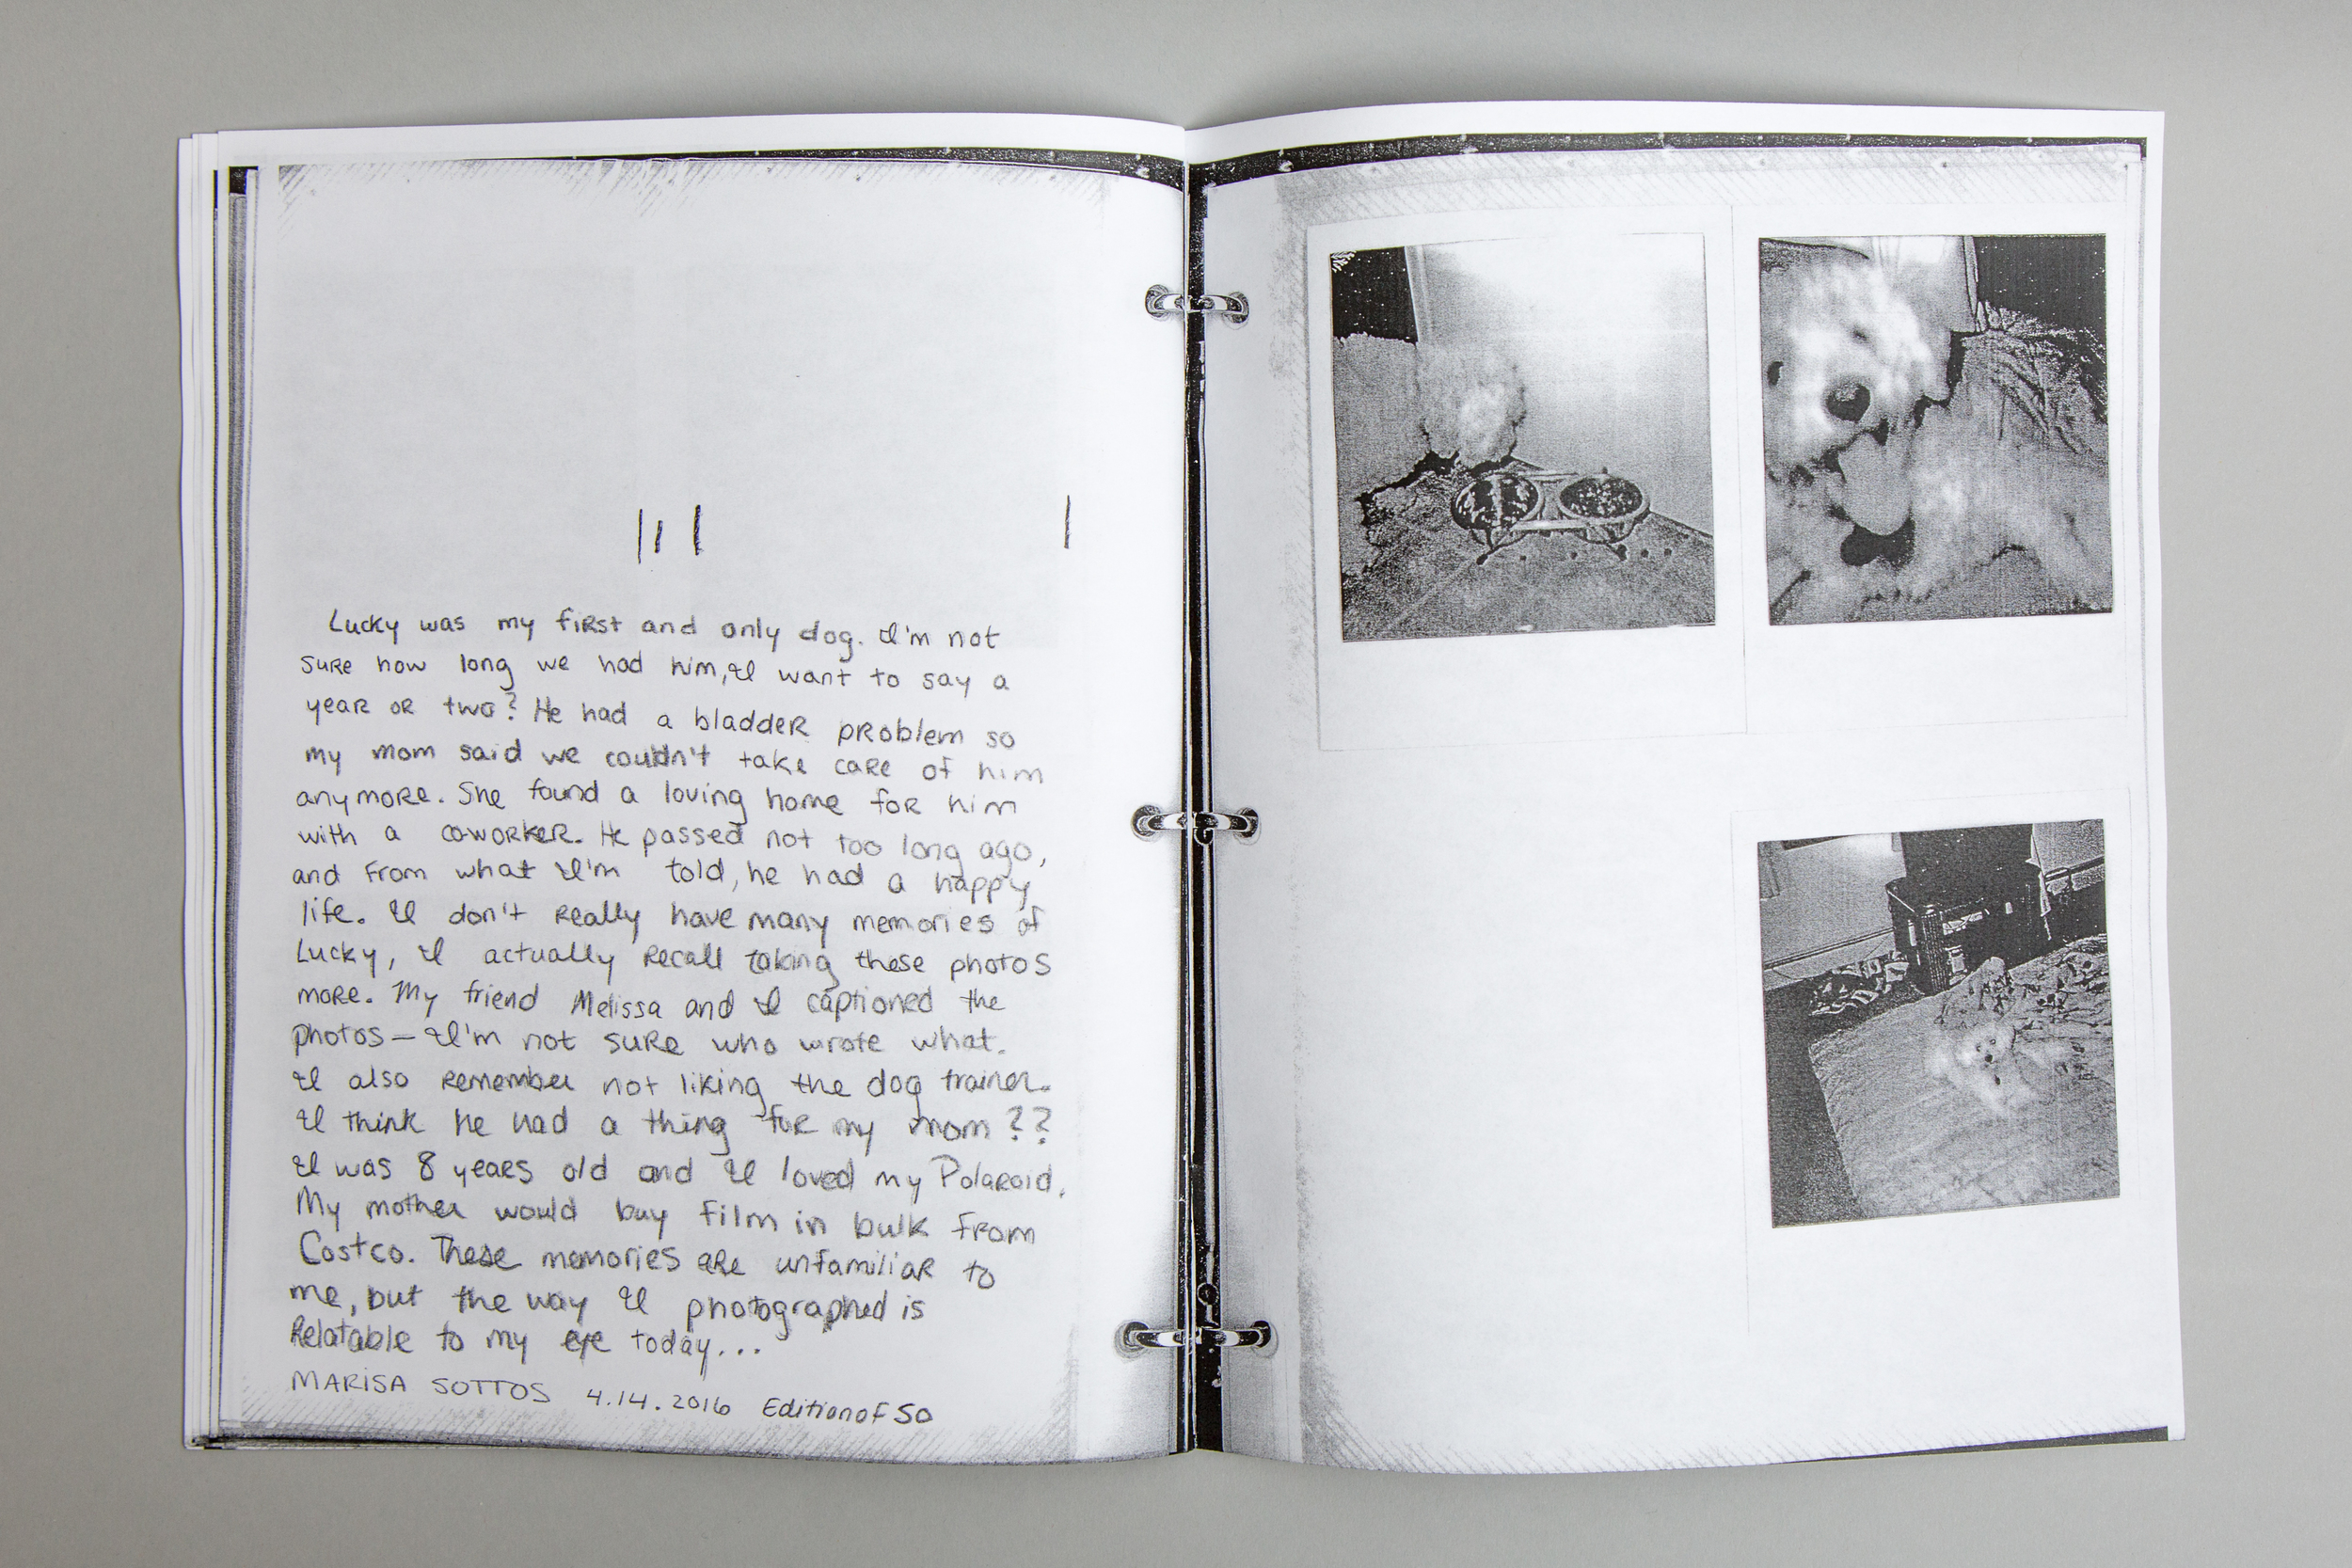 Lucky was my first and only dog. I'm not
sure how long we had him, I want to say a
year or two? He had a bladder problem so
my mom said we couldn't take care of him
anymore. She found a loving home for him
with a coworker. He passed not too long ago,
and from what I'm told, he had a happy
life. I don't really have many memories of
Lucky, I actually recall taking these photos
more. My friend Melissa and I captioned the
photos — I'm not sure who wrote what.
I also remember not liking the dog trainer.
I think he had a thing for my mom??
I was 8 years old and I loved my Polaroid.
My mother would buy film in bulk from
Costco. These memories are unfamiliar to
me, but the way I photographed is
relatable to my eye today...
MARISA SOTTOS 4.14.2016 Edition of 50